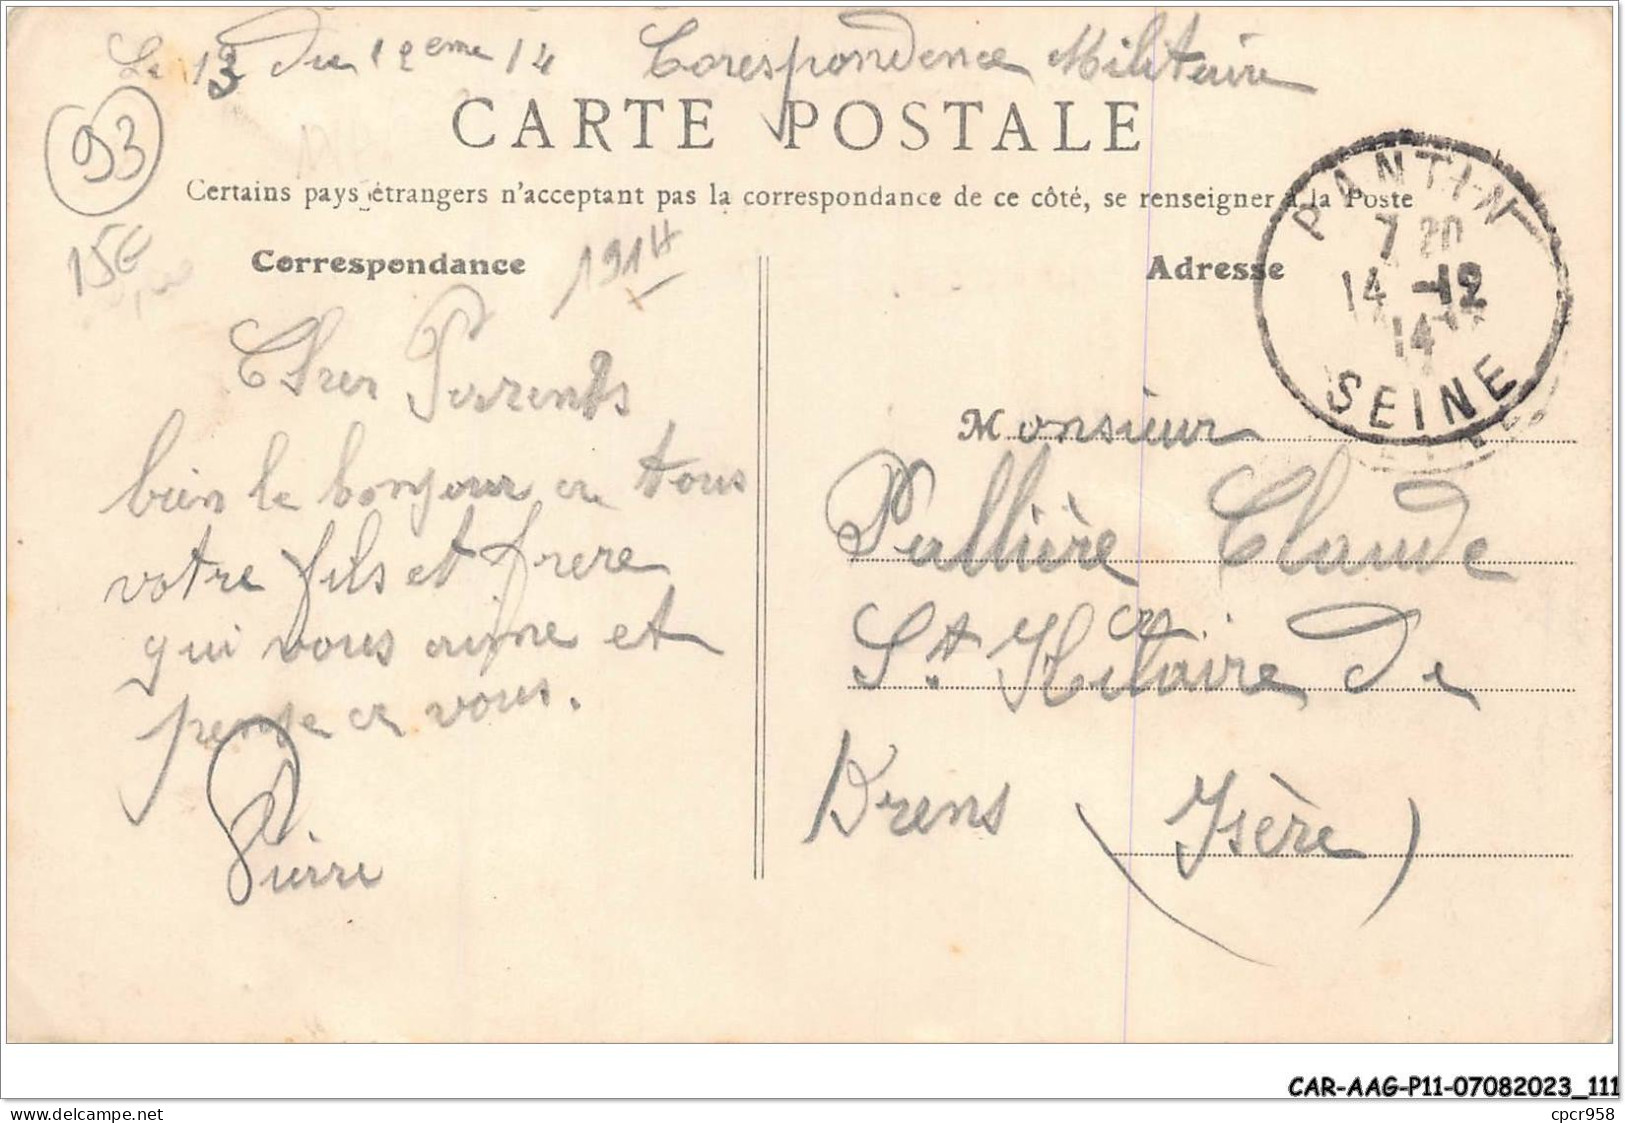 Le 13 du 12eme 14 Corespondence Militaire
93
CARTE POSTALE
Certains pays étrangers n'acceptant pas la correspondance de ce côté, se renseigner à la Poste
15€
Correspondance
1914
Adresse
PANTIN
7 20
14 -12
14
SEINE
Cher Parents
bien le bonjour a tous
votre fils et frere
qui vous aime et
pense a vous.
Pierre
Monsieur
Pallière Claude
a
St. Hilaire de
Brens (Isère)
CAR-AAG-P11-07082023_111
cpcr958